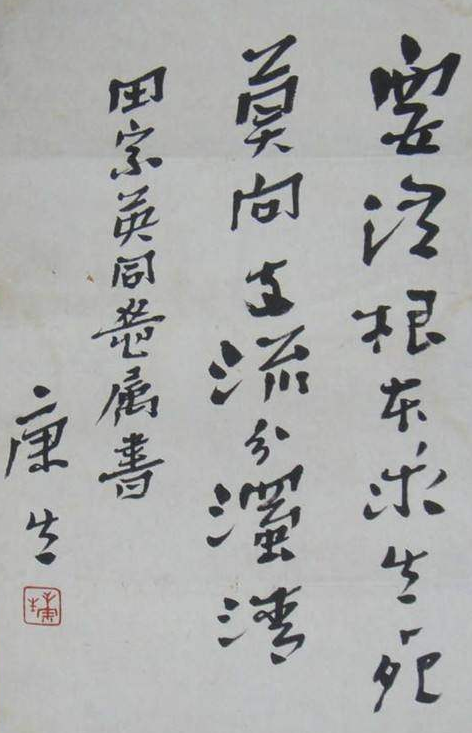 要從根本求生死
莫向支流分濁清
田宗英同志属書
康生